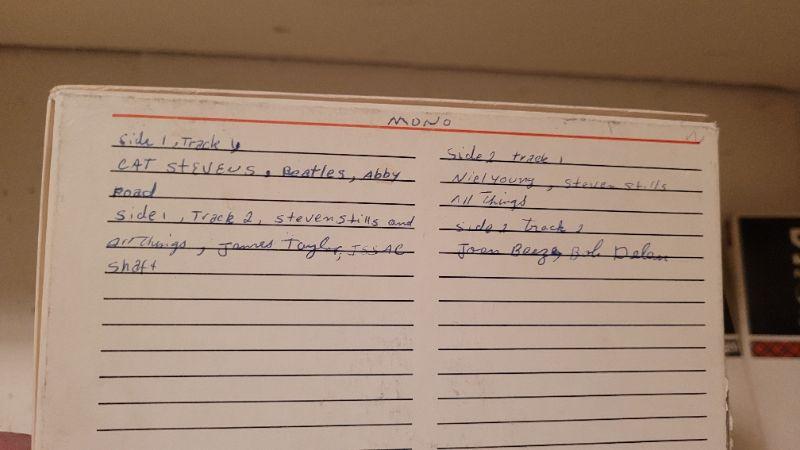 MONO
Side 1, Track 1
CAT STEVENS, Beatles, Abby
Road
Side 1, Track 2, steven stills and
All Things, James Taylor, ISSAC
Shaft
Side 2 track 1
Niel Young, Steven Stills
All Things
Side 2 track 2
Joan Baeze, Bob Delan